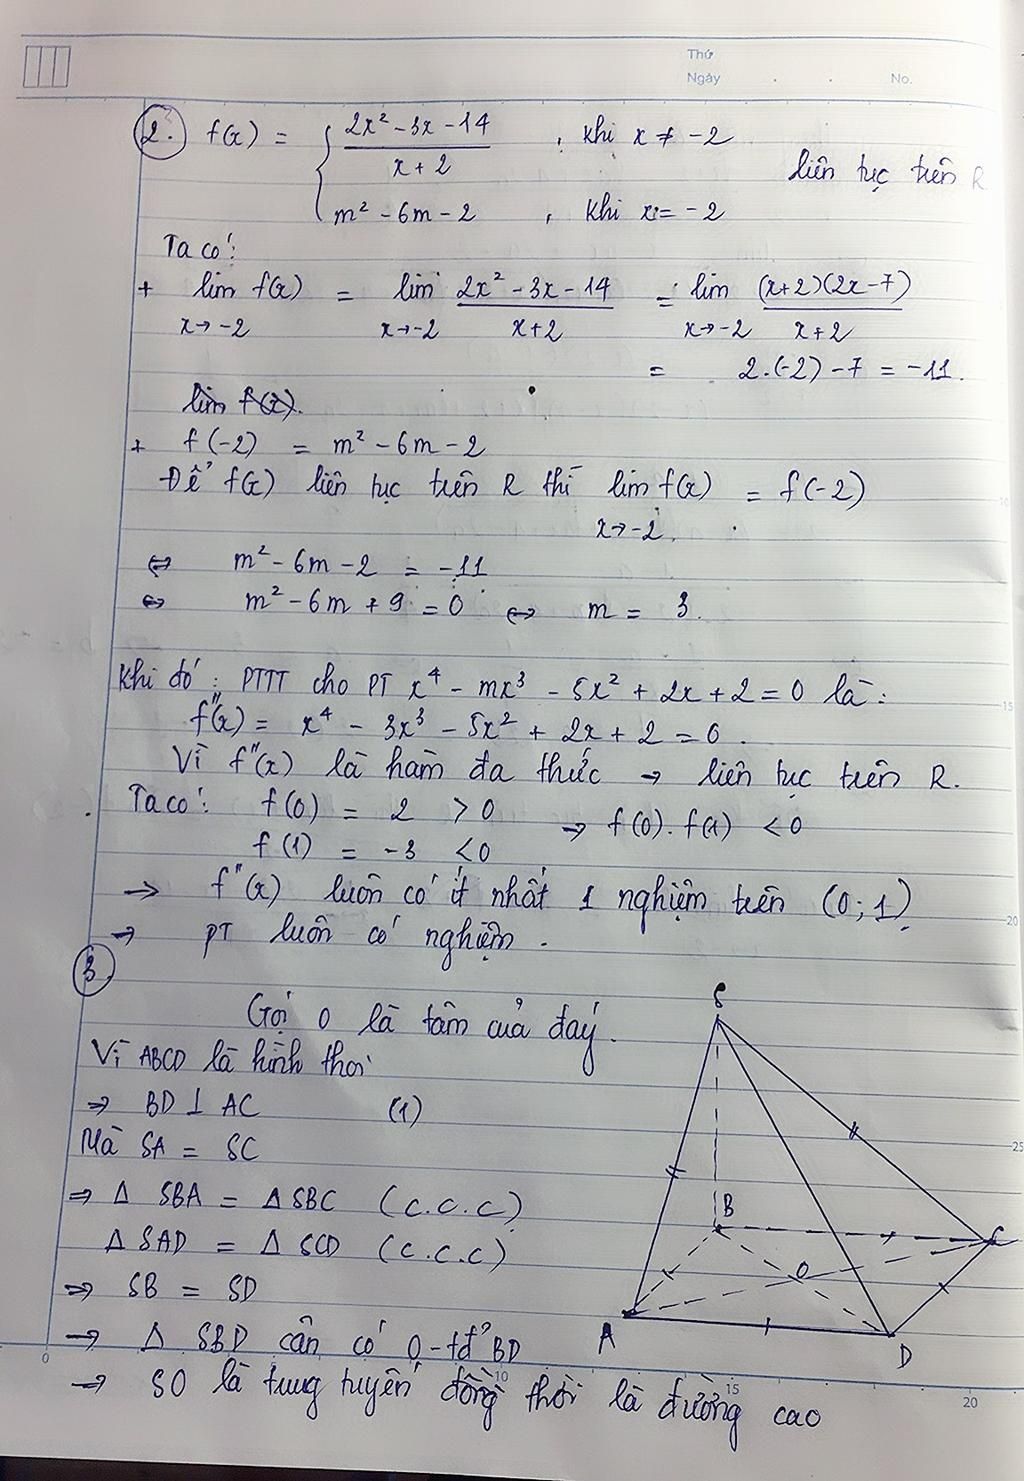 Thứ
Ngày . . No.
2. f(x) = { (2x² - 3x - 14)/(x + 2) , khi x ≠ -2
m² - 6m - 2 , khi x = -2
liên tục trên R
Ta có:
+ lim f(x) = lim (2x² - 3x - 14)/(x+2) = lim (x+2)(2x-7)/(x+2)
x→-2 x→-2 x→-2
= 2.(-2) - 7 = -11.
lim f(x).
+ f(-2) = m² - 6m - 2
Để f(x) liên tục trên R thì lim f(x) = f(-2)
x→-2
⇔ m² - 6m - 2 = -11
⇔ m² - 6m + 9 = 0 ⇔ m = 3.
Khi đó: PTTT cho PT x⁴ - mx³ - 5x² + 2x + 2 = 0 là:
f"(x) = x⁴ - 3x³ - 5x² + 2x + 2 = 0.
Vì f"(x) là hàm đa thức → liên tục trên R.
Ta có: f(0) = 2 > 0
f(1) = -3 < 0
⇒ f(0). f(1) < 0
→ f"(x) luôn có ít nhất 1 nghiệm trên (0; 1)
→ PT luôn có nghiệm.
3.
Gọi O là tâm của đáy.
Vì ABCD là hình thoi
⇒ BD ⊥ AC (1)
Mà SA = SC
⇒ Δ SBA = Δ SBC (c.c.c)
Δ SAD = Δ SCD (c.c.c)
⇒ SB = SD
→ Δ SBD cân có O - tđ BD
→ SO là trung tuyến đồng thời là đường cao
S
B
C
O
A
D
15
20
25
0
10
15
20